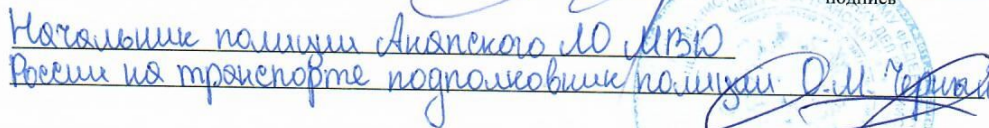 подпись
Начальник полиции Анапского ЛО МВД
России на транспорте подполковник полиции О.М. Черный